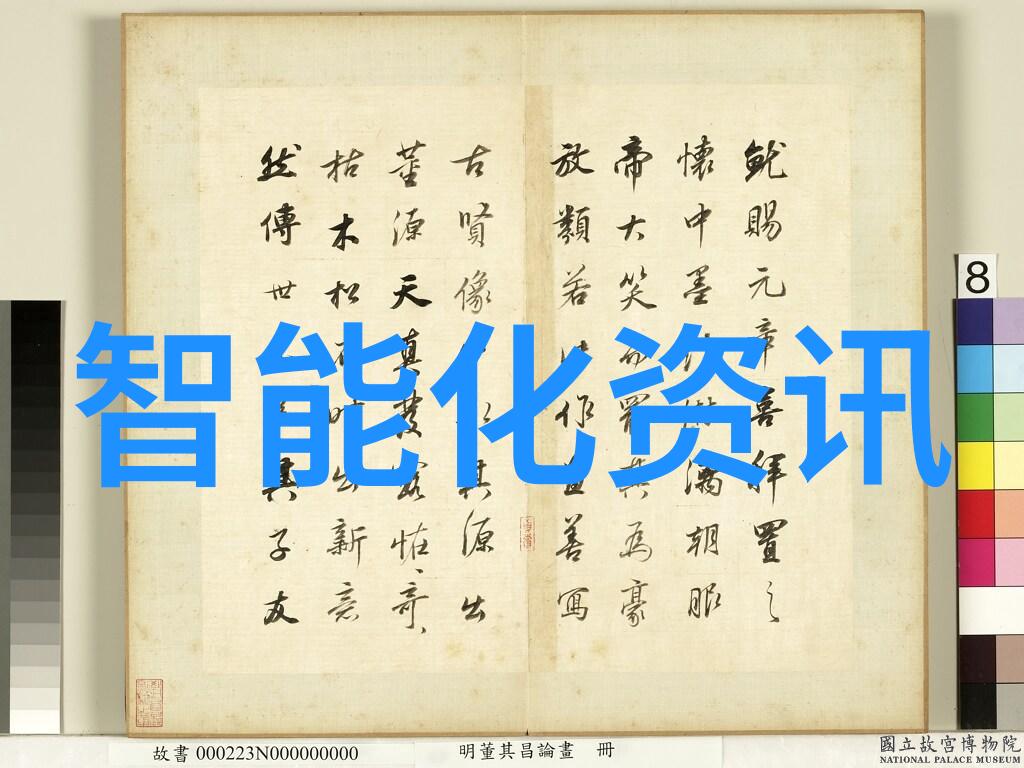 智能化资讯
就賜元章 拜置之
懷中墨 漓朝服
帝大笑而罷其為豪
放類若 作 善寫
古賢像 其源出
董源天真發露怪〻奇〻
枯木松石時出新意
然傳世 其子友
8
故書 000223N000000000
明董其昌論畫 冊
國立故宮博物院
NATIONAL PALACE MUSEUM